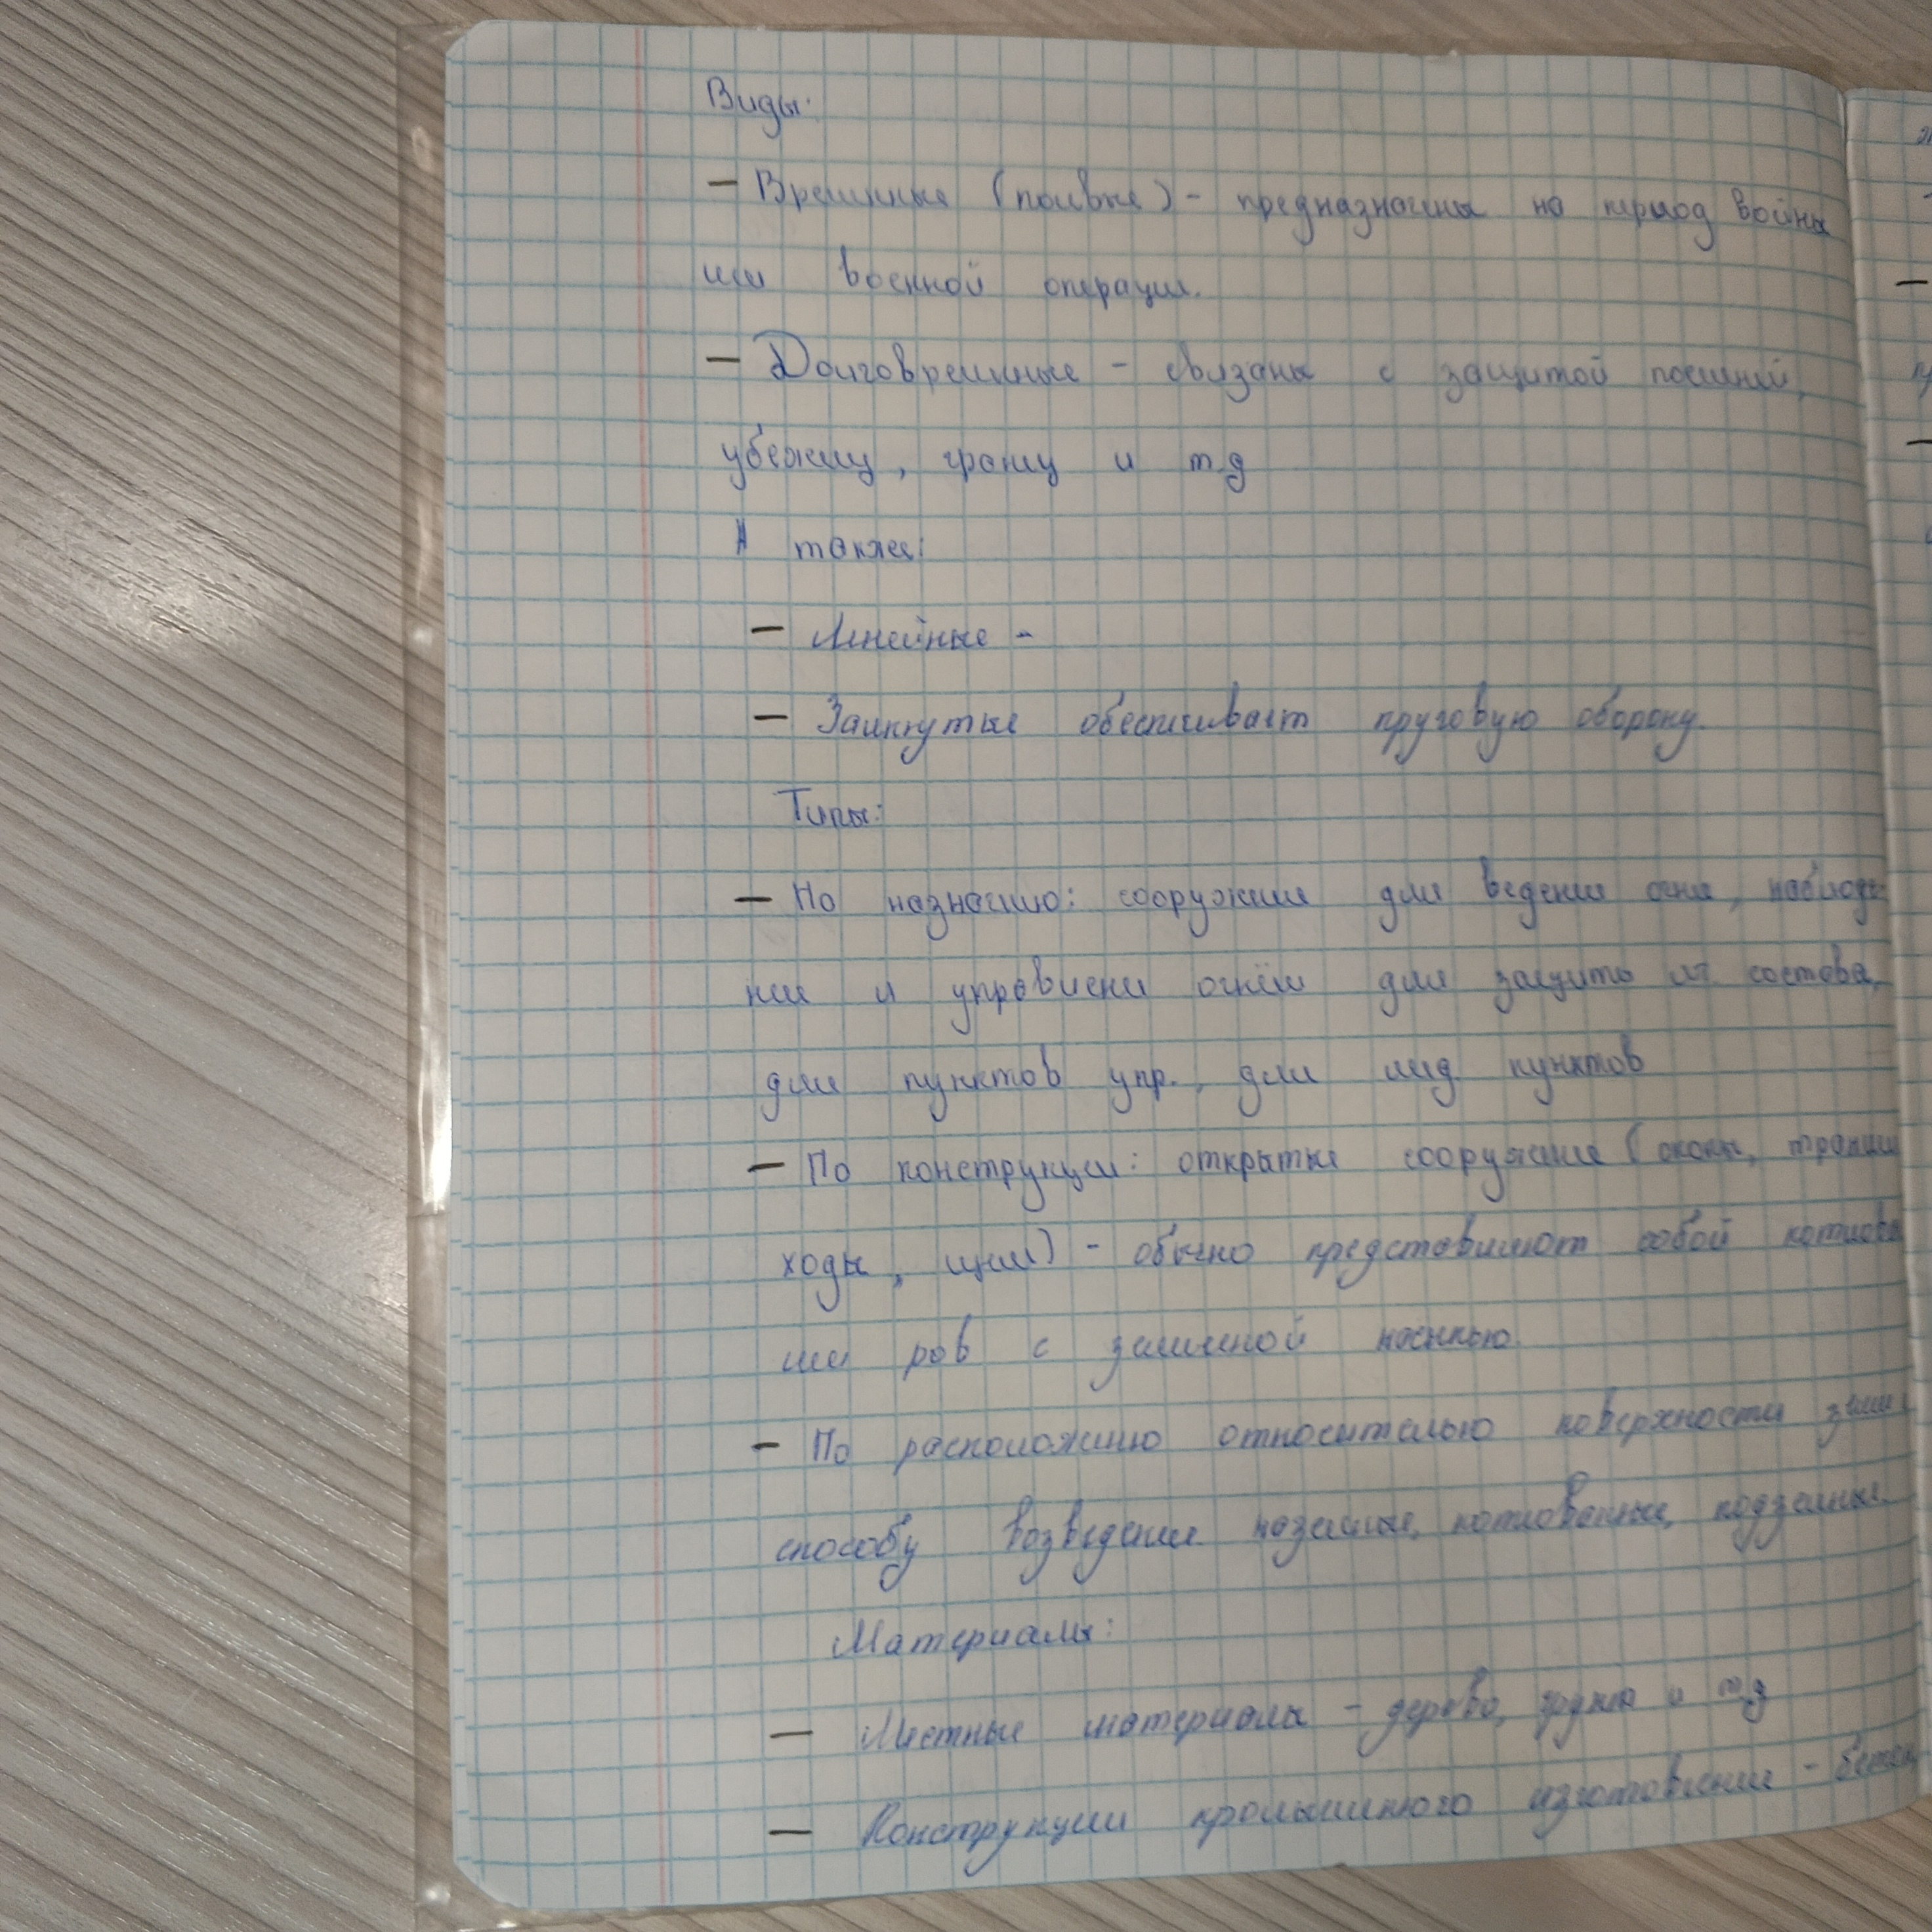 Виды:
— Времинные (полвые) - предназначины на период войны
или военной операции.
— Долговреминные - связаны с защитой посиний,
убежищ, границ и т.д
А также:
— Линейные -
— Замкнутые обеспичивает круговую оборону.
Типы:
— По назначию: сооружение для ведение огня, наблюде-
ние и управлени огнём для защиты л. состава,
для пунктов упр., для мед. пунктов
— По конструкции: открытые сооружение (окопы, траншеи
ходы, щели) - обычно представляют собой котлован
или ров с земленой насыпью.
— По расположению относительно поверхности земли
способу возведения наземные, котлованные, подземные.
Материалы:
— Местные материалы - дерево, грунт и т.д
— Конструкции промышленного изготовления - бетон